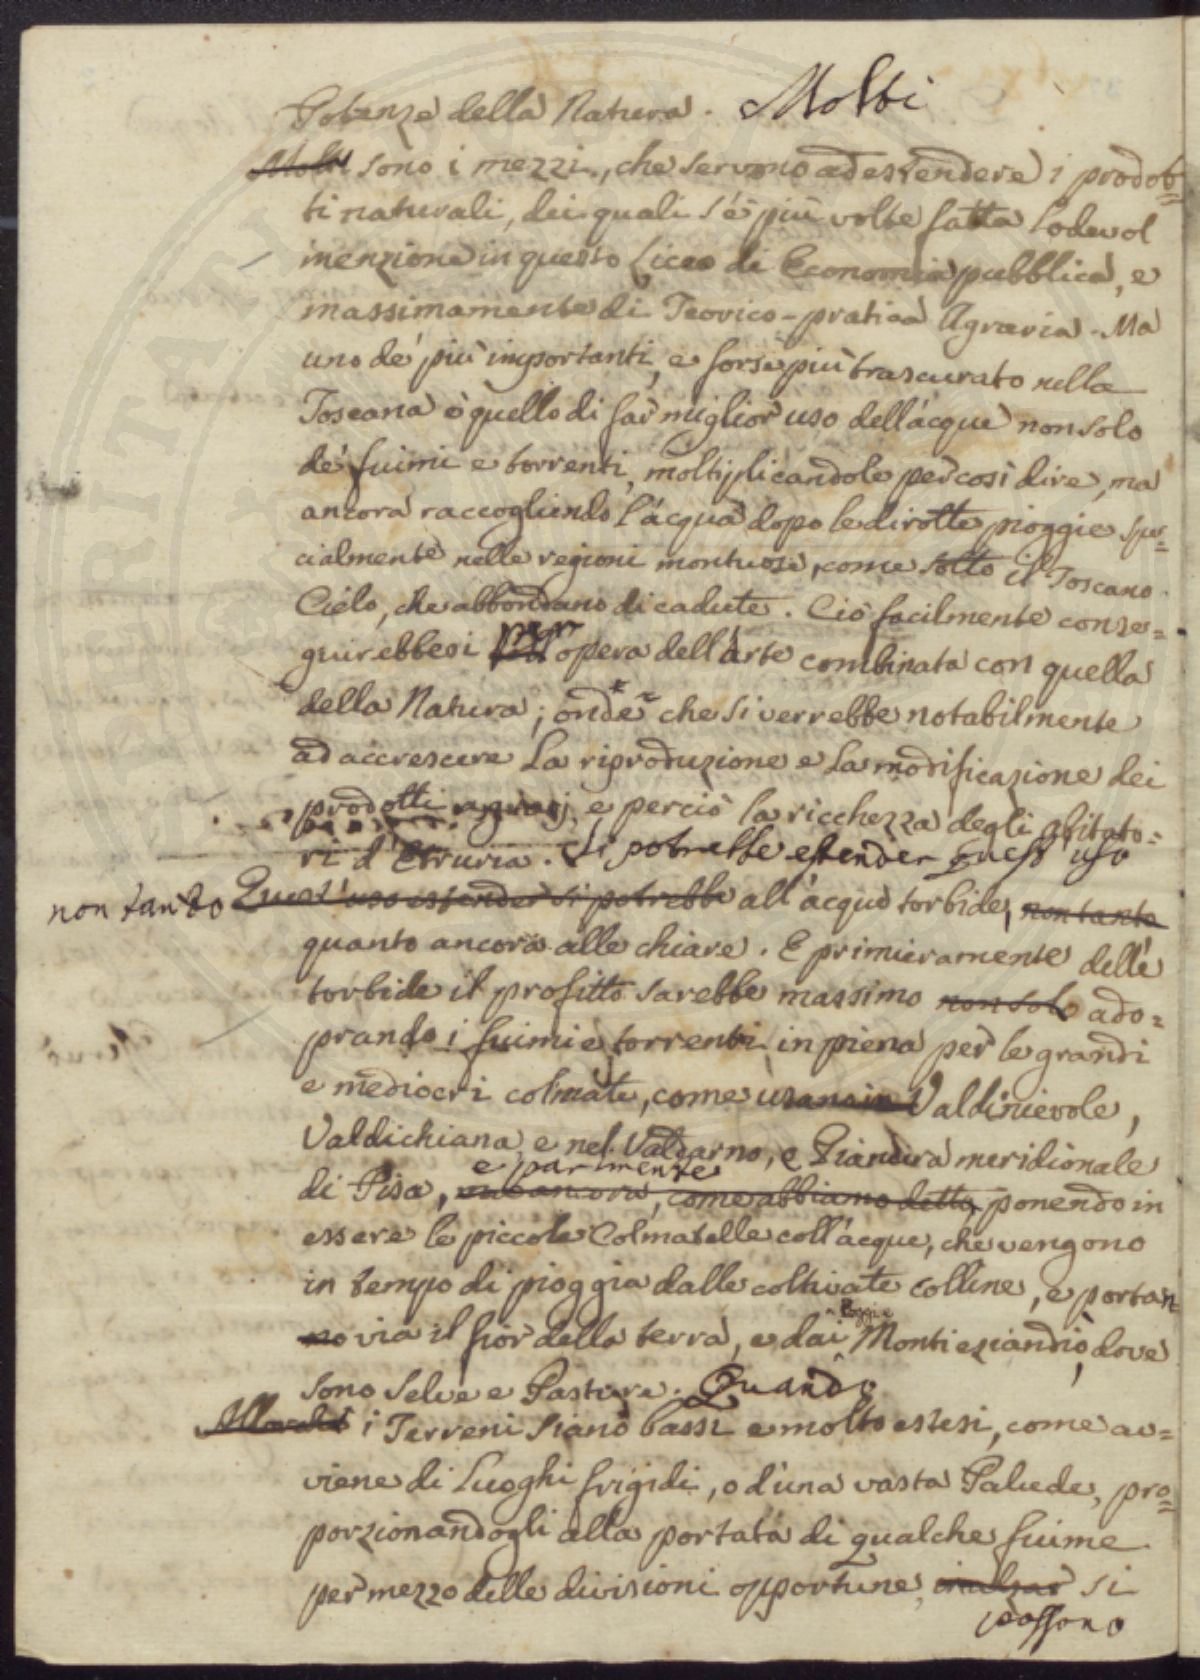 Potenze della Natura. Molti
Molti sono i mezzi, che servono ad estendere i prodot=
ti naturali, dei quali s'è più volte fatta lodevol
menzione in questo Liceo di Economia pubblica, e
massimamente di Teorico-pratica Agraria. Ma
uno de' più importanti, e forse più trascurato nella
Toscana è quello di far miglior uso dell'acque non solo
de' fiumi e torrenti, moltiplicandole per così dire, ma
ancora raccogliendo l'acqua dopo le dirotte pioggie spe=
cialmente nelle regioni montuose, come sotto il Toscano
Cielo, che abbondano di cadute. Ciò facilmente conse=
guirebbesi per opera dell'arte combinata con quella
della Natura; onde che si verrebbe notabilmente
ad accrescere la riproduzione e la modificazione dei
prodotti agrarj, e perciò la ricchezza degli abitato=
ri d'Etruria. Si potrebbe estender quest'uso
non tanto Quest'uso estender si potrebbe all'acque torbide, non tanto
quanto ancora alle chiare. E primieramente delle
torbide il profitto sarebbe massimo non solo ado=
prando i fiumi e torrenti in piena per le grandi
e mediocri colmate, come usano in Valdinievole,
Valdichiana, e nel Valdarno, e Pianura meridionale
e parimente
di Pisa, come abbiamo detto ponendo in
essere le piccole Colmatelle coll'acque, che vengono
in tempo di pioggia dalle coltivate colline, e portan=
Poggi e
no via il fior della terra, e dai Monti eziandio, dove
sono Selve e Pasture. Quando
Allorchè i Terreni siano bassi e molto estesi, come av=
viene di Luoghi frigidi, o d'una vasta Palude, pro=
porzionandogli alla portata di qualche fiume
per mezzo delle divisioni opportune, si
possono